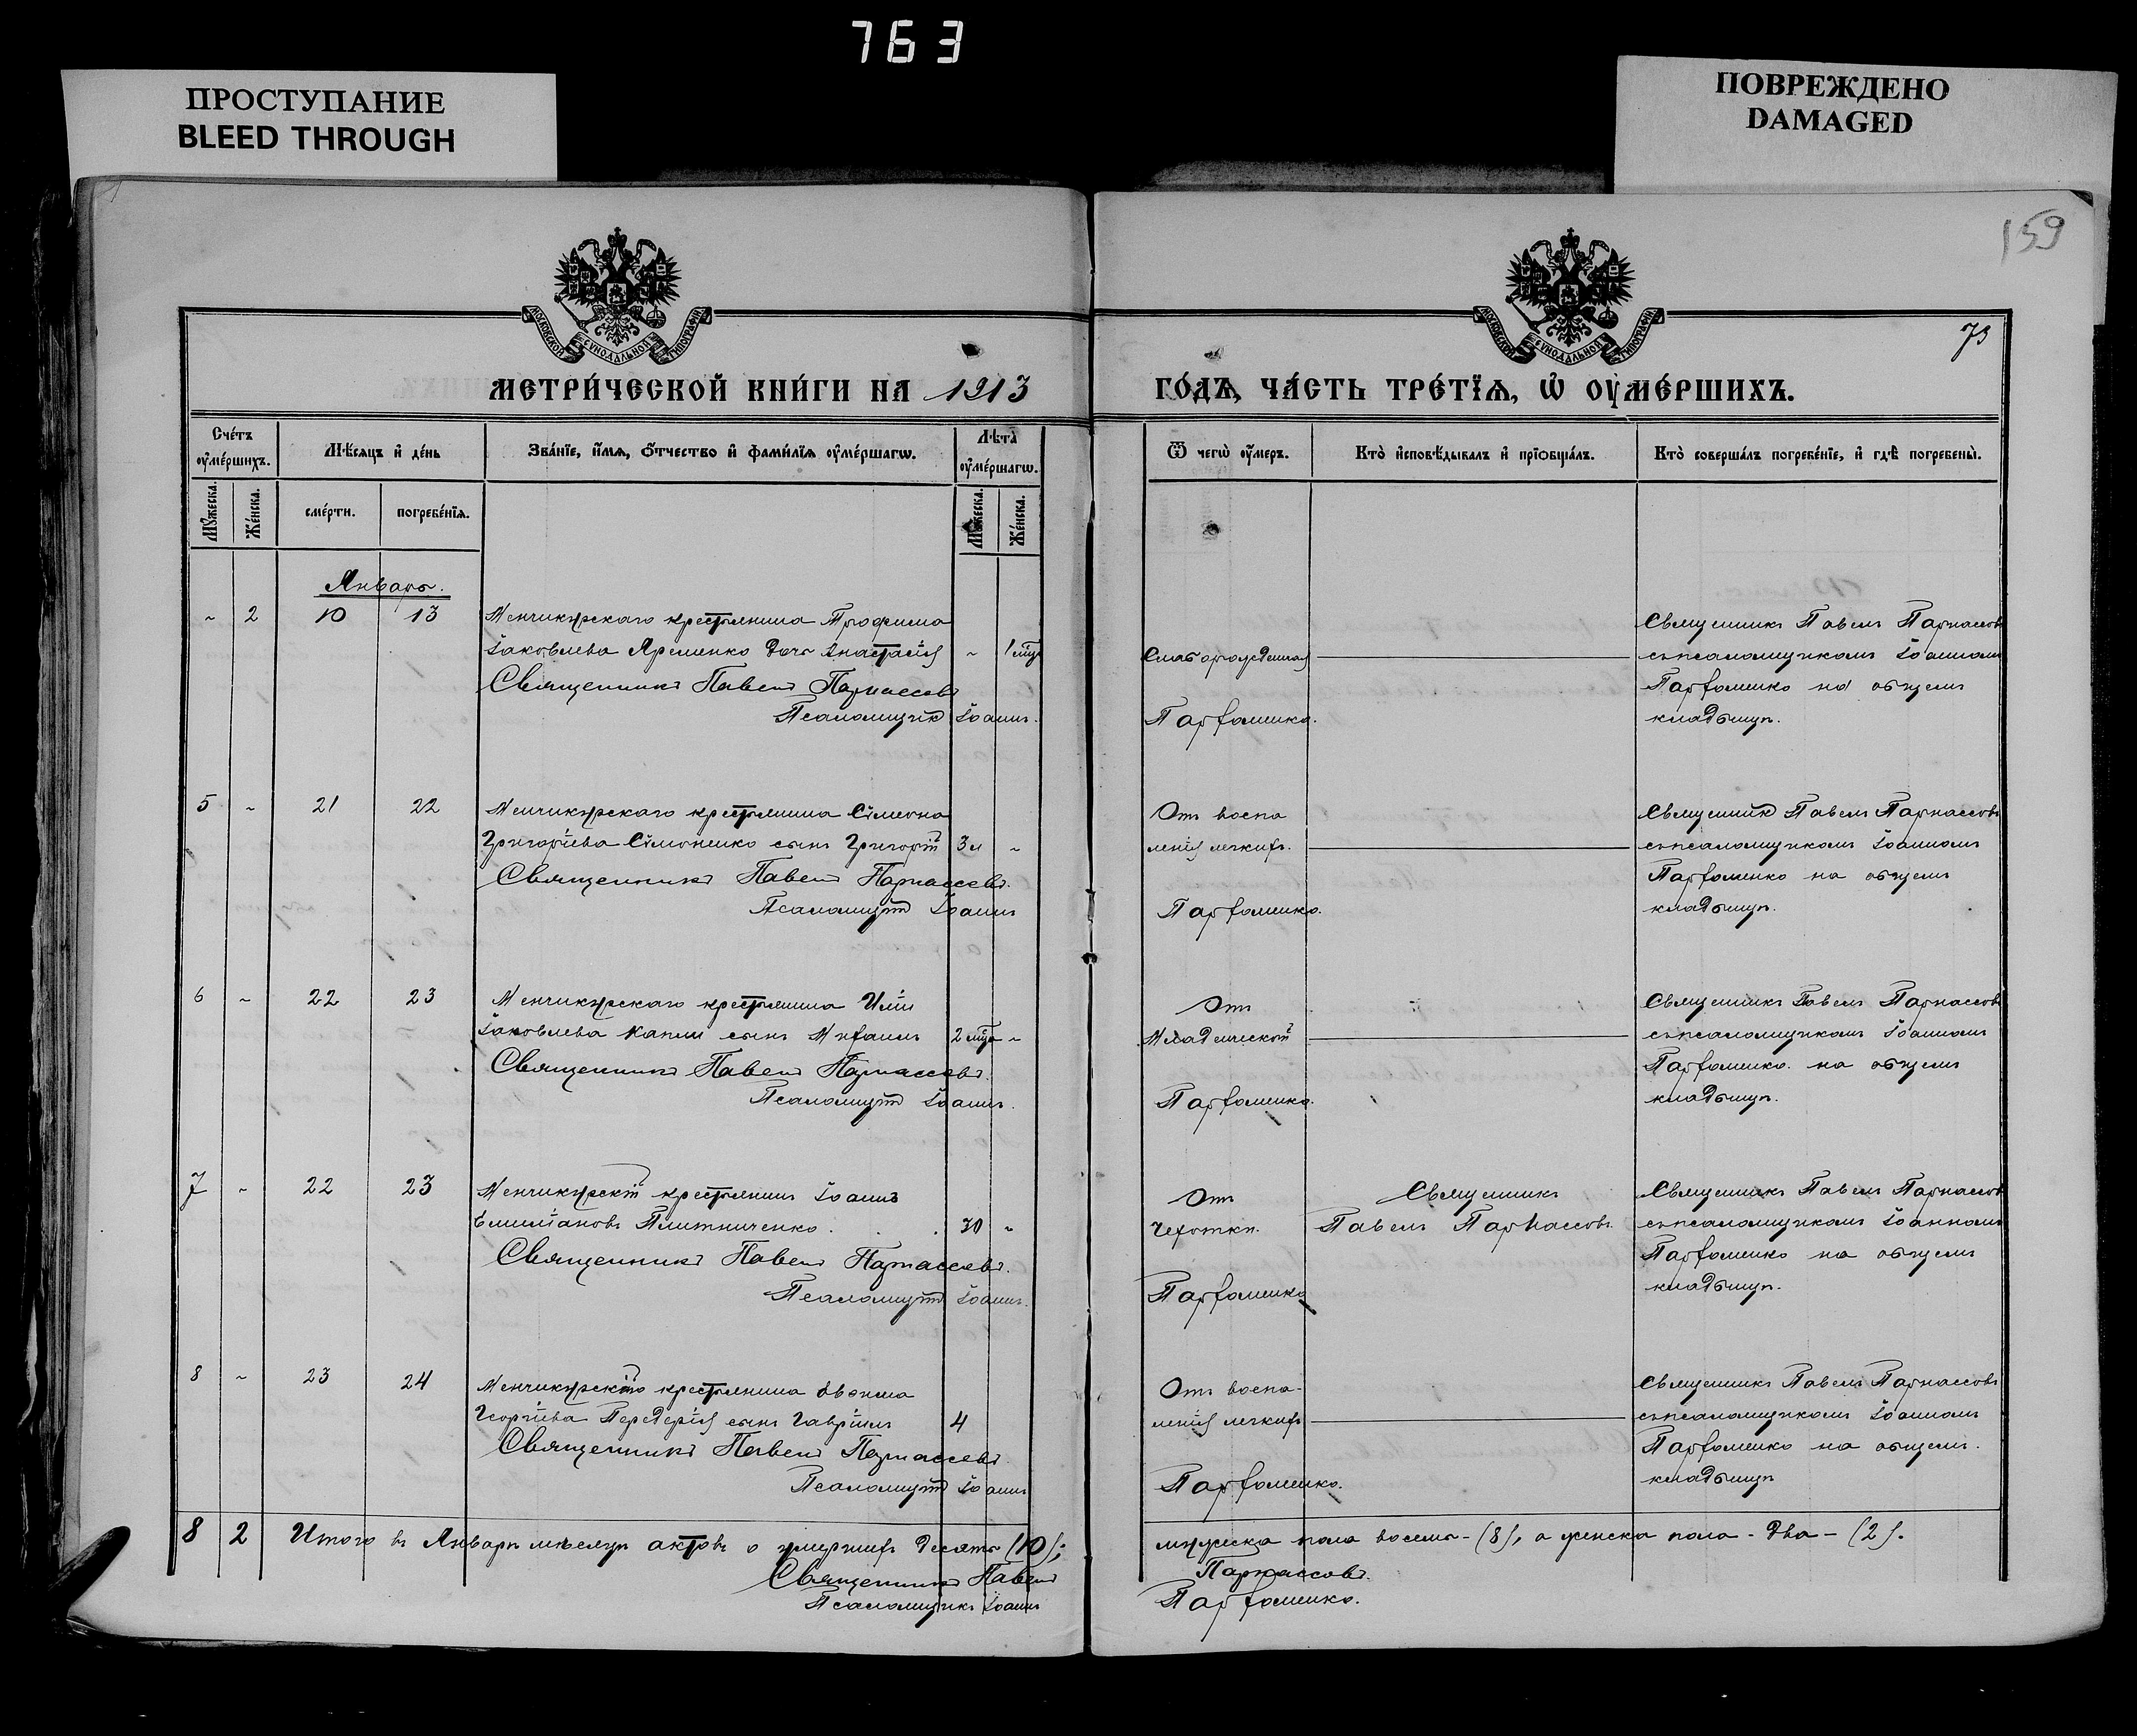 763
ПРОСТУПАНИЕ
BLEED THROUGH
ПОВРЕЖДЕНО
DAMAGED
159
МОСКОВСКОЙ СѴНОДАЛЬНОЙ ТИПОГРАФІИ
МОСКОВСКОЙ СѴНОДАЛЬНОЙ ТИПОГРАФІИ
73
МЕТРИ́ЧЕСКОЙ КНИ́ГИ НА 1913 ГО́ДЪ, ЧА́СТЬ ТРЕ́ТЇѦ, Ѽ ОУМЕ́РШИХЪ.
Сче́тъ оу҆ме́ршихъ.
Мѣ́сяцъ и҆ де́нь
Зва́нїе, и҆́мѧ, ѻ҆́тчество и҆ фами́лїѧ оу҆ме́ршагѡ.
Лѣта̀ оу҆ме́ршагѡ.
Ѿ чегѡ̀ оу҆́меръ.
Кто̀ и҆сповѣ́дывалъ и҆ прїѻбща́лъ.
Кто̀ соверша́лъ погребе́нїе, и҆ гдѣ̀ погребены̀.
Мꙋ́жеска.
Же́нска.
сме́рти.
погребе́нїѧ.
Мꙋ́жеска.
Же́нска.
Январь.
~ 2 10 13 Менчикурскаго крестьянина Трофима
Іаковлева Яременко дочь Анастасія ~ 1 мѣс
Священникъ Павелъ Парнассовъ
Псаломщикъ Іоаннъ
Слаборожденная
Парфоменко.
Священникъ Павелъ Парнассовъ
съ псаломщикомъ Іоанномъ
Парфоменко на общемъ
кладбищѣ.
5 ~ 21 22 Менчикурскаго крестьянина Сімеона
Григоріева Сімоненко сынъ Григорій 3 м ~
Священникъ Павелъ Парнассовъ.
Псаломщикъ Іоаннъ
Отъ воспа
ленія легкихъ.
Парфоменко.
Священникъ Павелъ Парнассовъ
съ псаломщикомъ Іоанномъ
Парфоменко на общемъ
кладбищѣ.
6 ~ 22 23 Менчикурскаго крестьянина Иліи
Іаковлева Капли сынъ Михаилъ 2 мѣс ~
Священникъ Павелъ Парнассовъ.
Псаломщикъ Іоаннъ.
Отъ
Младенческой
Парфоменко.
Священникъ Павелъ Парнассовъ
съ псаломщикомъ Іоанномъ
Парфоменко. на общемъ
кладбищѣ.
7 ~ 22 23 Менчикурскій крестьянинъ Іоаннъ
Емиліановъ Плитниченко. 30 ~
Священникъ Павелъ Парнассовъ.
Псаломщикъ Іоаннъ.
Отъ
Чехотки.
Парфоменко
Священникъ
Павелъ Парнассовъ.
Священникъ Павелъ Парнассовъ
съ псаломщикомъ Іоанномъ
Парфоменко на общемъ
кладбищѣ.
8 ~ 23 24 Менчикурскаго крестьянина
Георгіева Передерія сынъ Гавріилъ 4
Священникъ Павелъ Парнассовъ.
Псаломщикъ Іоаннъ
Отъ воспа-
ленія легкихъ
Парфоменко.
Священникъ Павелъ Парнассовъ
съ псаломщикомъ Іоанномъ
Парфоменко на общемъ.
кладбищѣ
8 2 Итого въ Январѣ мѣсяцѣ актовъ о умершихъ десять (10);
мужеска пола восемь - (8), а женска пола - два - (2).
Священникъ Павелъ Парнассовъ.
Псаломщикъ Іоаннъ Парфоменко.